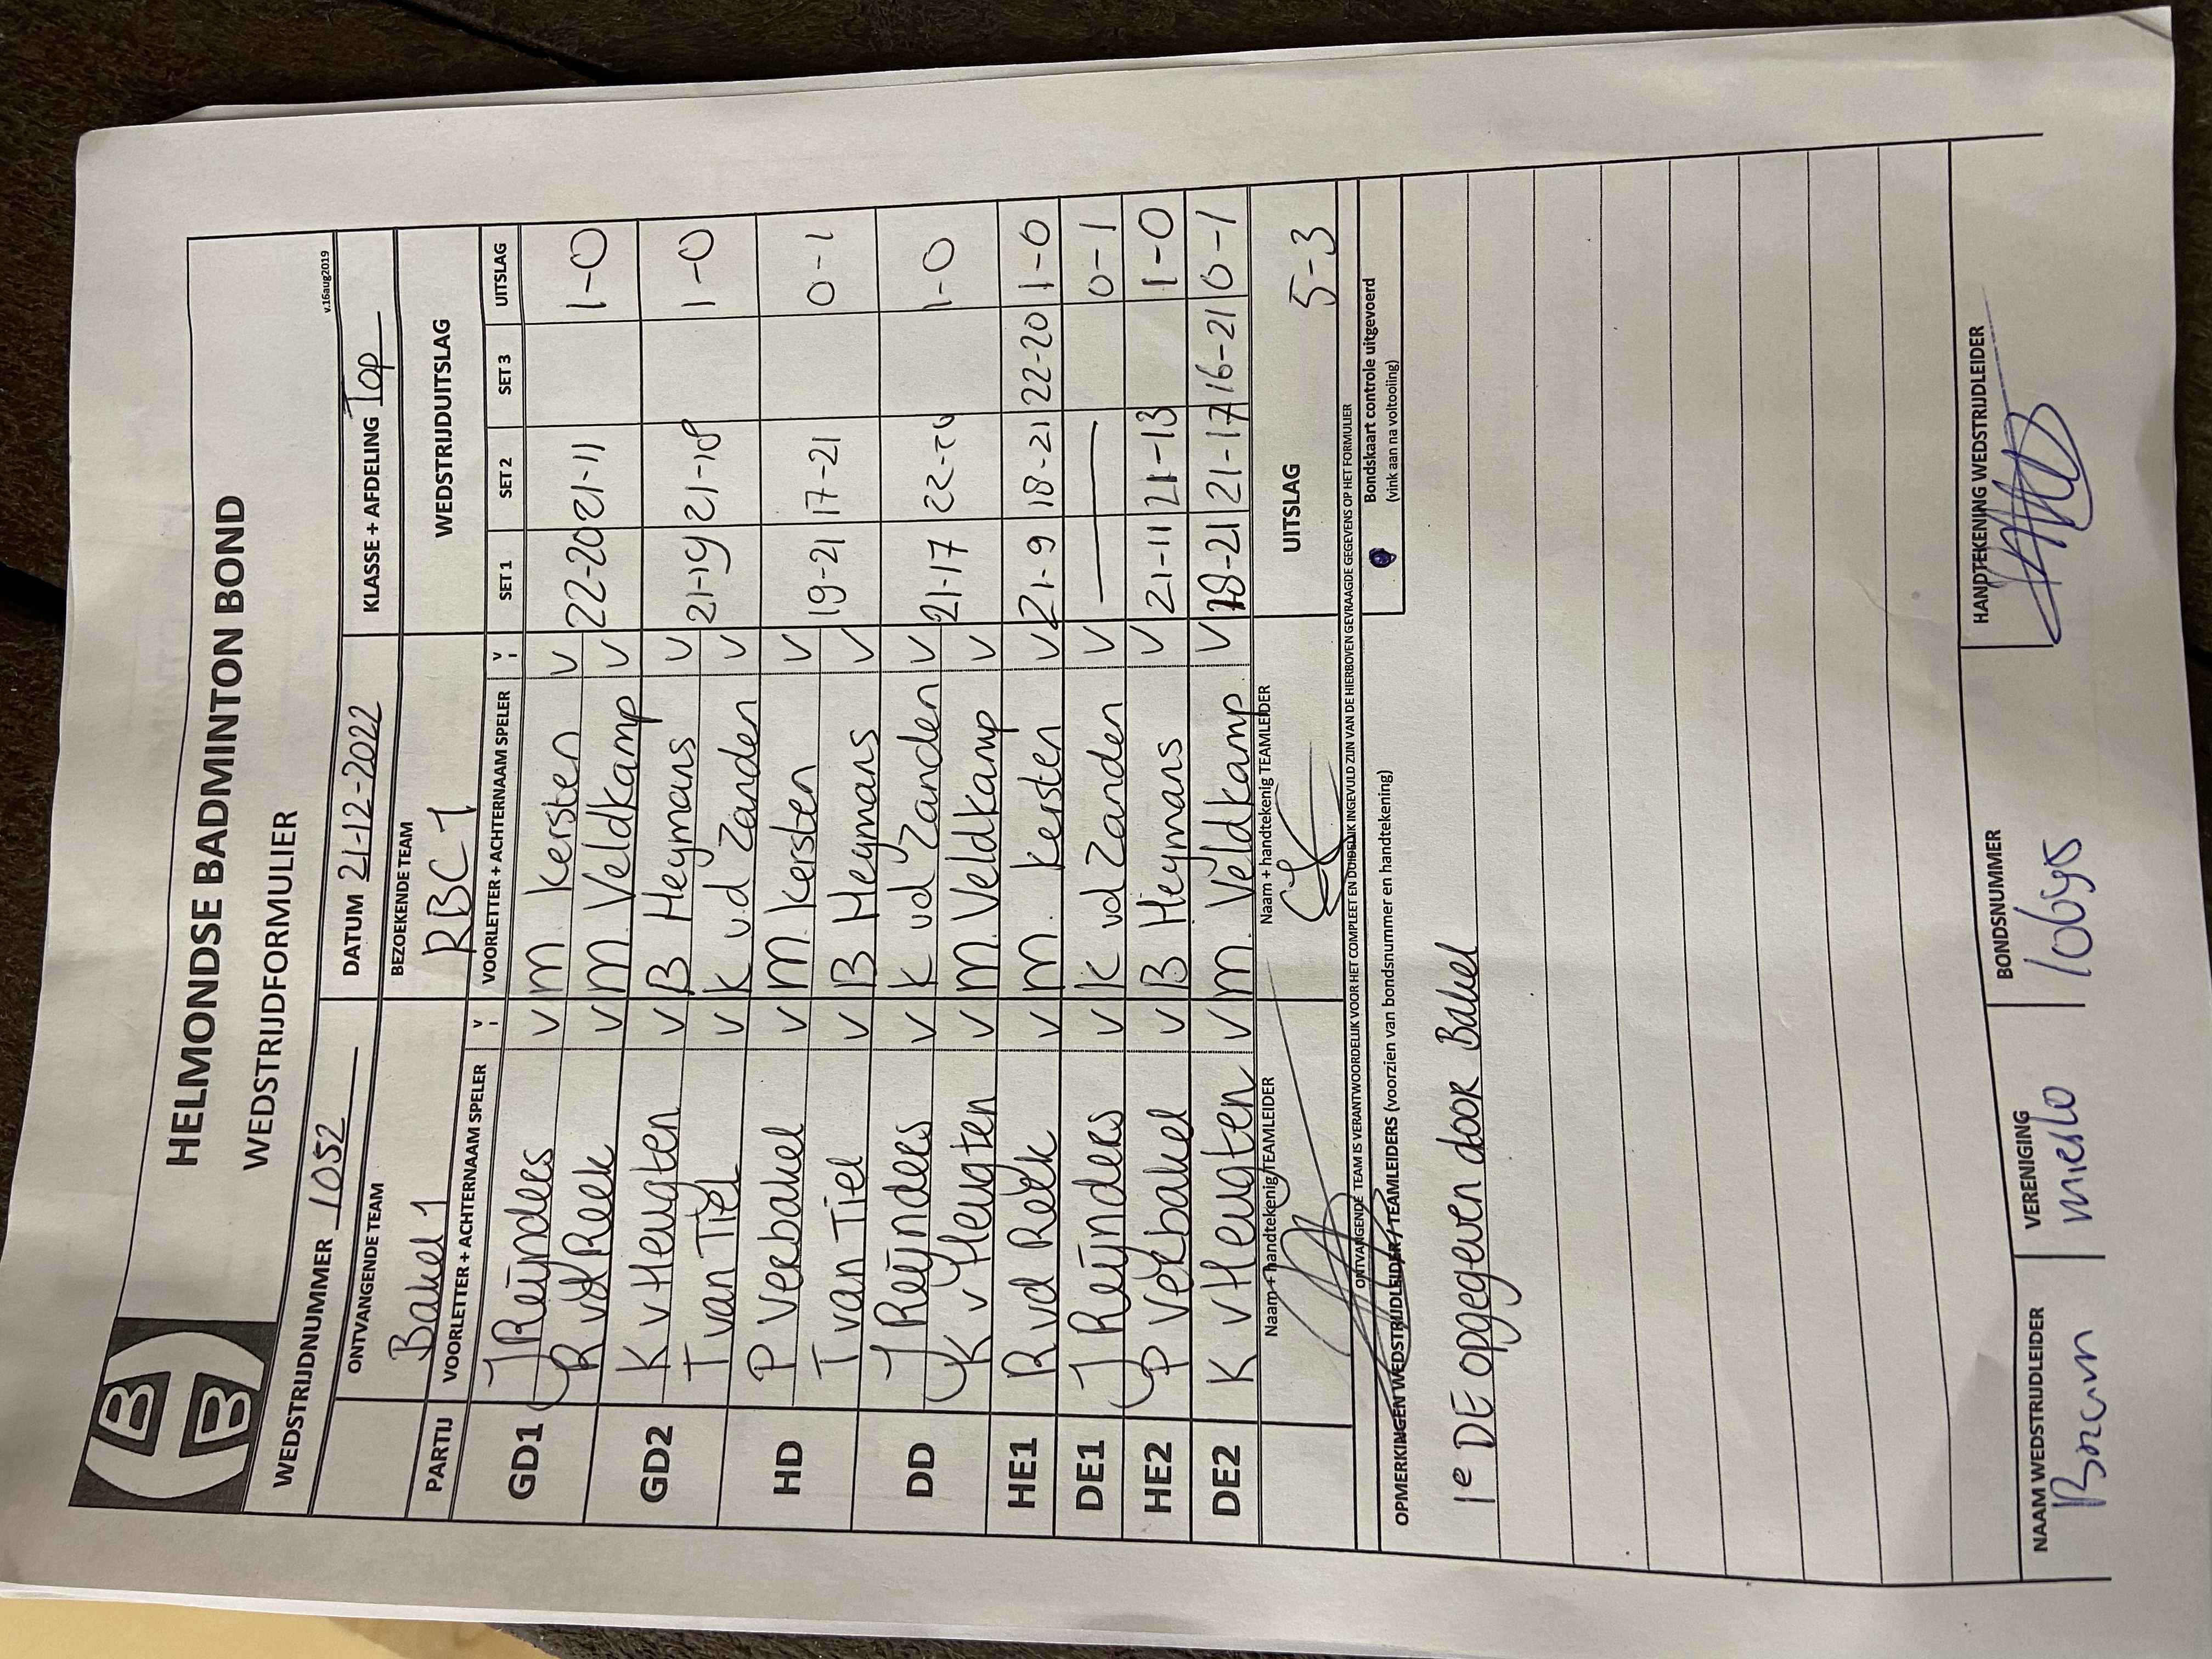 HELMONDSE BADMINTON BOND
WEDSTRIJDFORMULIER
v.16aug2019
WEDSTRIJDNUMMER 1052 DATUM 21-12-2022 KLASSE + AFDELING Top
ONTVANGENDE TEAM BEZOEKENDE TEAM WEDSTRIJDUITSLAG
Bakel 1 RBC 1
PARTIJ VOORLETTER + ACHTERNAAM SPELER V VOORLETTER + ACHTERNAAM SPELER V SET 1 SET 2 SET 3 UITSLAG
GD1 J Reijnders V M. Kersten V 22-20 21-11 1-0
R vd Reek V M. Veldkamp V
GD2 K v Heugten V B Heymans V 21-19 21-18 1-0
T van Tiel V K v.d Zanden V
HD P Verbakel V M. Kersten V 19-21 17-21 0-1
T van Tiel V B Heymans V
DD J Reijnders V K vd Zanden V 21-17 22-20 1-0
K v Heugten V M. Veldkamp V
HE1 R vd Reek V M. Kersten V 21-9 18-21 22-20 1-0
DE1 J Reijnders V K vd Zanden V — — 0-1
HE2 P Verbakel V B Heymans V 21-11 21-13 1-0
DE2 K v Heugten V M. Veldkamp V 18-21 21-17 16-21 0-1
Naam + handtekenig TEAMLEIDER Naam + handtekenig TEAMLEIDER UITSLAG 5-3
ONTVANGENDE TEAM IS VERANTWOORDELIJK VOOR HET COMPLEET EN DUIDELIJK INGEVULD ZIJN VAN DE HIERBOVEN GEVRAAGDE GEGEVENS OP HET FORMULIER
OPMERKINGEN WEDSTRIJDLEIDER / TEAMLEIDERS (voorzien van bondsnummer en handtekening)
Bondskaart controle uitgevoerd
(vink aan na voltooiing)
1e DE opgegeven door Bakel
NAAM WEDSTRIJDLEIDER VERENIGING BONDSNUMMER HANDTEKENING WEDSTRIJDLEIDER
Mierlo